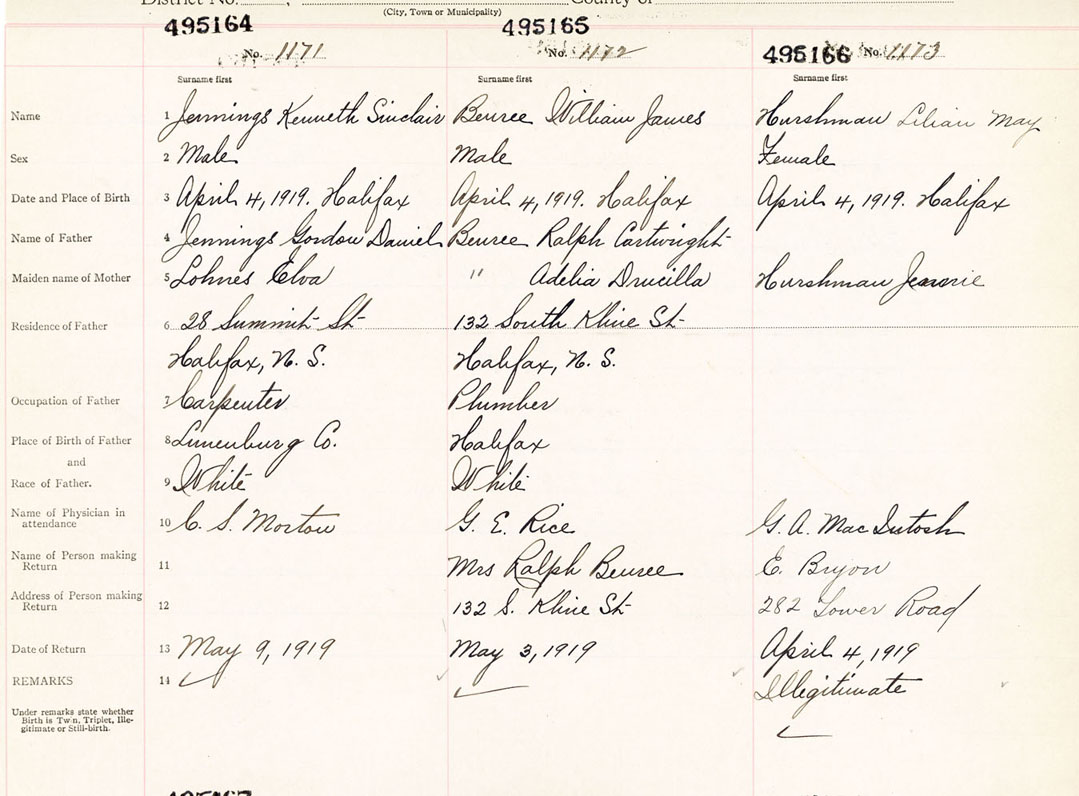 District No. , County of
(City, Town or Municipality)
495164 495165 495166
No. 1171 No. 1172 No. 1173
Surname first Surname first Surname first
Name 1 Jennings Kenneth Sinclair Beuree William James Hurshman Lilian May
Sex 2 Male Male Female
Date and Place of Birth 3 April 4, 1919. Halifax April 4, 1919. Halifax April 4, 1919. Halifax
Name of Father 4 Jennings Gordon Daniel Beuree Ralph Cartwright
Maiden name of Mother 5 Lohnes Elva " Adelia Drucilla Hurshman Jennie
Residence of Father 6 28 Summit St 132 South Kline St
Halifax, N. S. Halifax, N. S.
Occupation of Father 7 Carpenter Plumber
Place of Birth of Father 8 Lunenburg Co. Halifax
and
Race of Father. 9 White White
Name of Physician in
attendance 10 C. S. Morton G. E. Rice G. A. MacIntosh
Name of Person making
Return 11 Mrs Ralph Beuree E. Bryon
Address of Person making
Return 12 132 S. Kline St 282 Tower Road
Date of Return 13 May 9, 1919 May 3, 1919 April 4, 1919
REMARKS 14 Illegitimate
Under remarks state whether
Birth is Twin, Triplet, Ille-
gitimate or Still-birth.